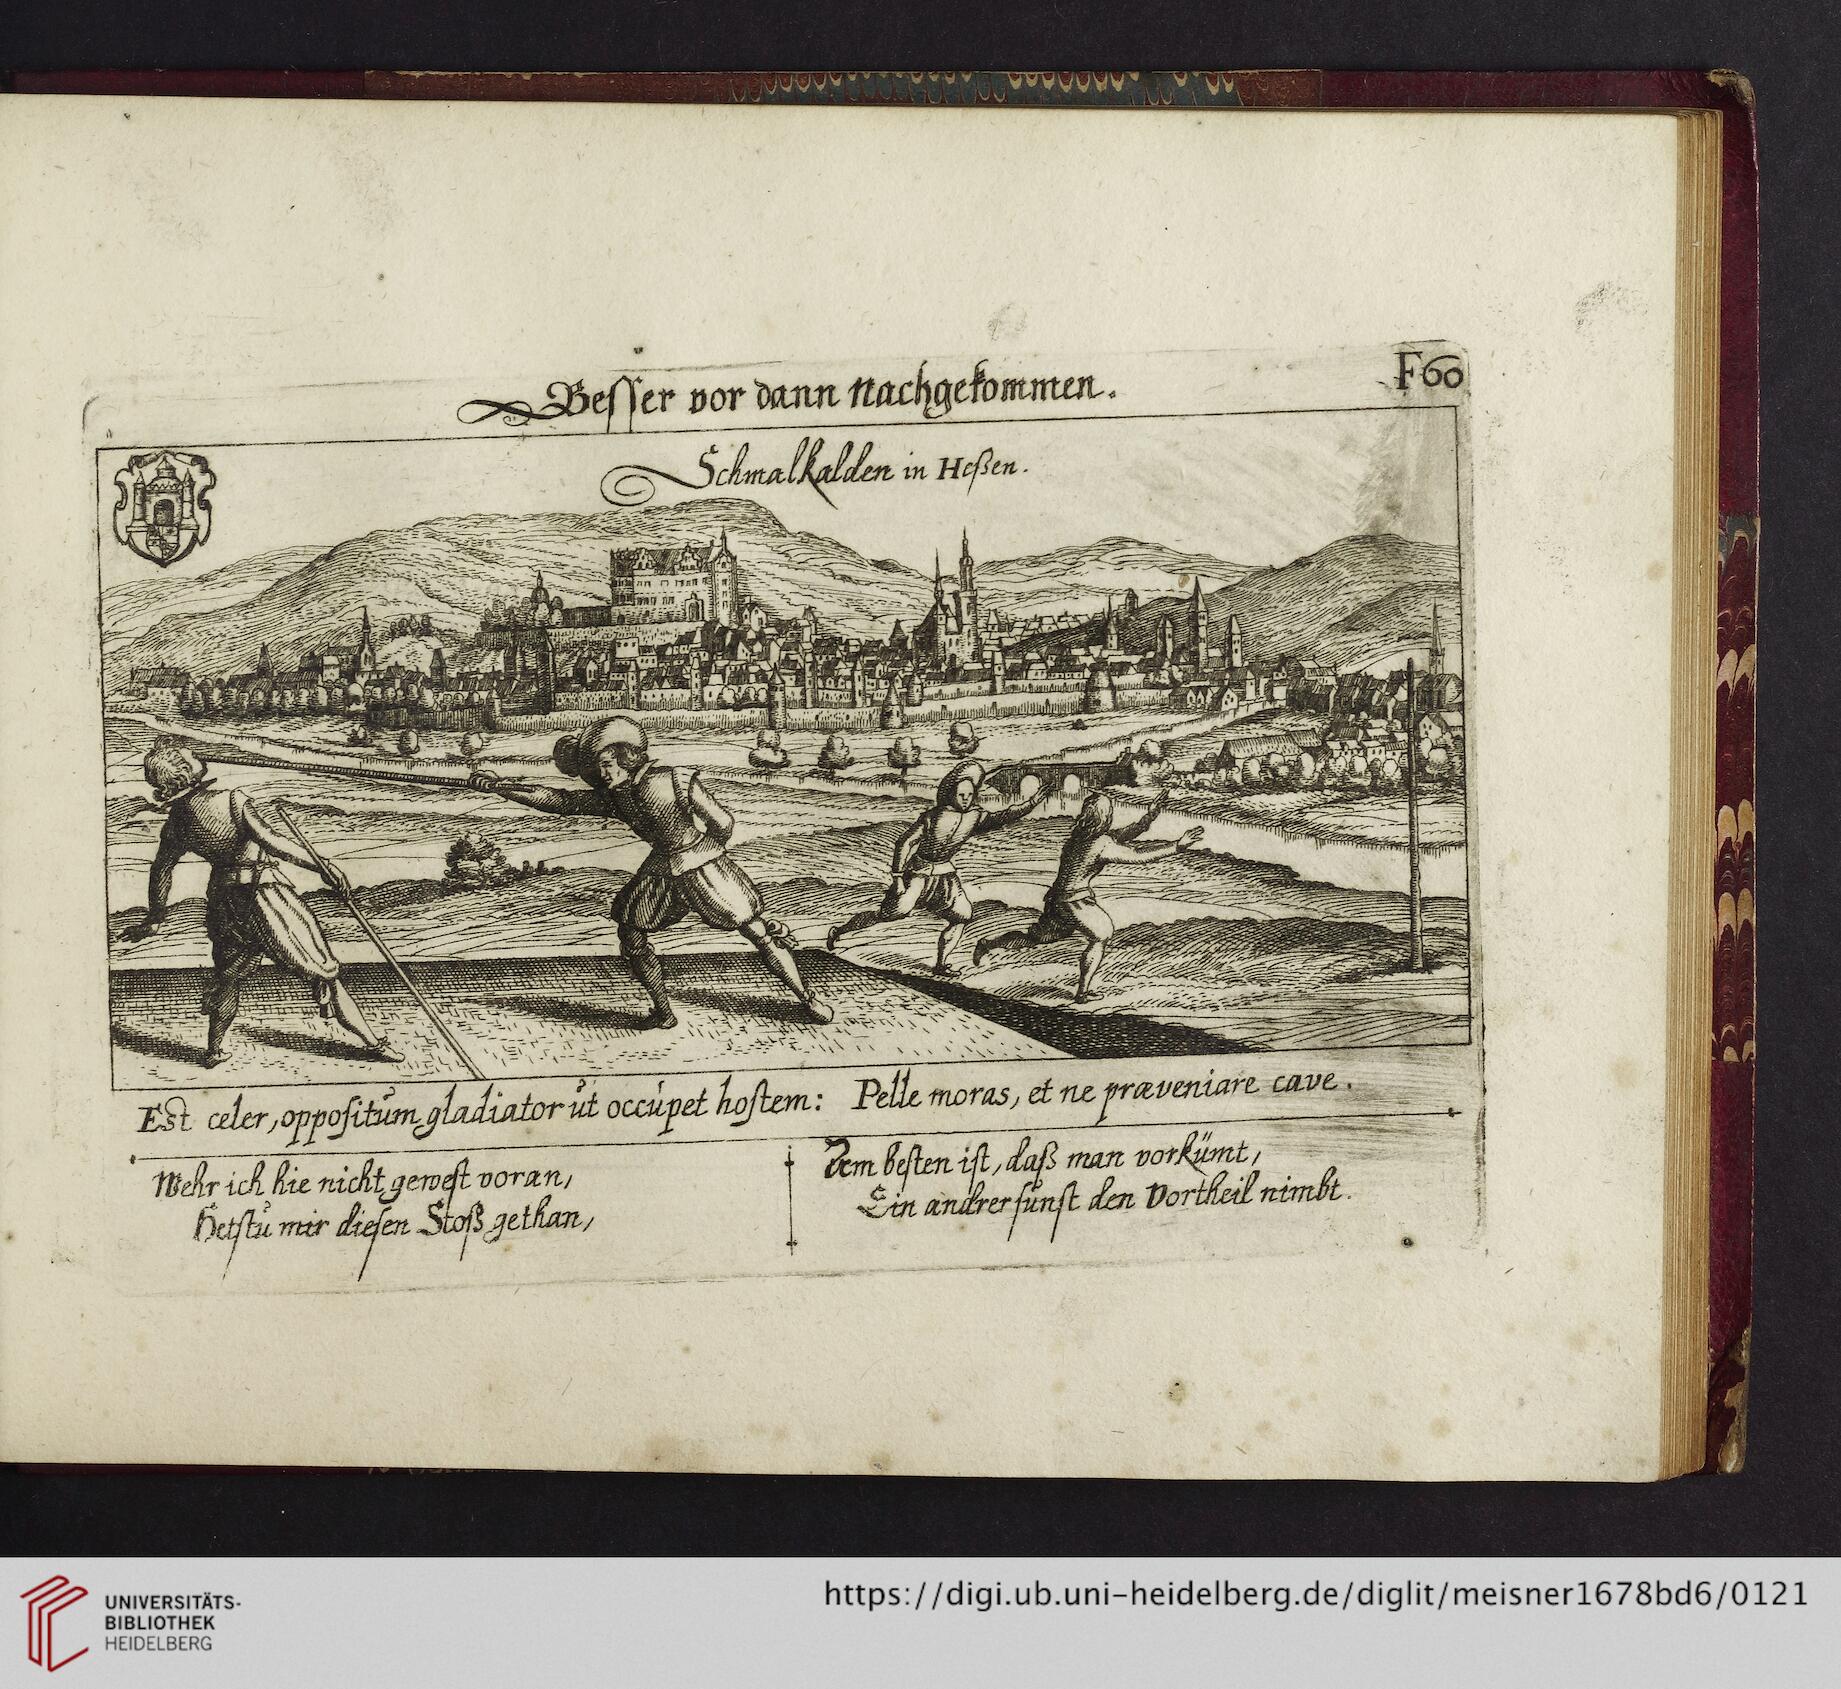 Besser vor dann Nachgekommen.
F60
Schmalkalden in Heßen.
Est celer, oppositum gladiator ut occupet hostem: Pelle moras, et ne præveniare cave.
Wehr ich hie nicht gewest voran,
Hetstu mir diesen Stoß gethan,
Dem besten ist, daß man vorkümt,
Ein andrer sunst den Vortheil nimbt.
UNIVERSITÄTS-
BIBLIOTHEK
HEIDELBERG
https://digi.ub.uni-heidelberg.de/diglit/meisner1678bd6/0121